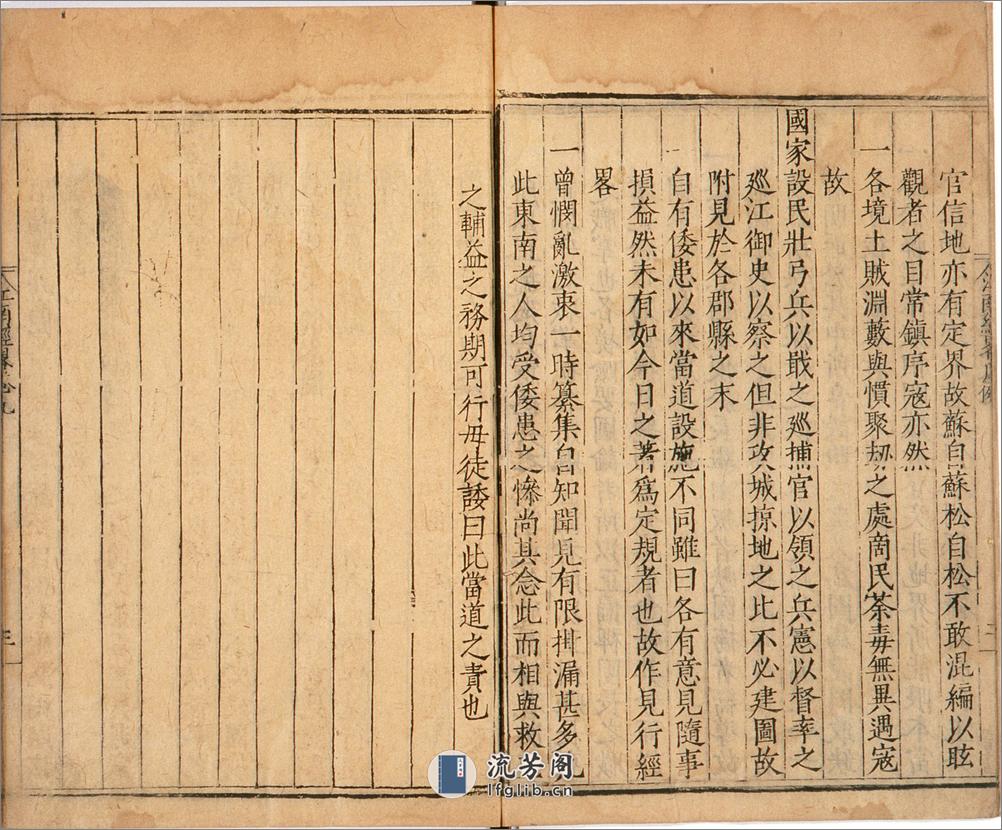 官信地亦有定界故蘇自蘇松自松不敢混編以眩
觀者之目常鎮序寇亦然
一各境土賊淵藪與慣聚刼之處啇民荼毒無異遇寇
故
國家設民壯弓兵以戢之廵捕官以領之兵憲以督率之
廵江御史以察之但非攻城掠地之比不必建圖故
附見於各郡縣之末
一自有倭患以來當道設施不同雖曰各有意見隨事
損益然未有如今日之著爲定規者也故作見行經
畧
一曾憫亂激衷一時纂集自知聞見有限掛漏甚多凡
此東南之人均受倭患之慘尚其念此而相與救
之輔益之務期可行毋徒諉曰此當道之責也
流芳阁
lfglib.cn